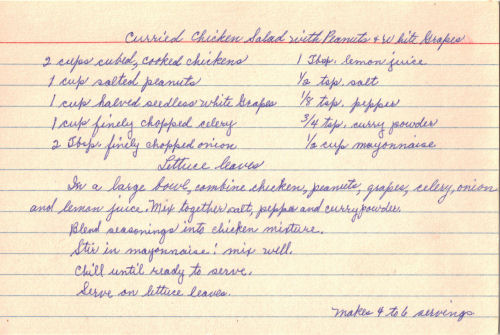 Curried Chicken Salad with Peanuts & White Grapes
2 cups cubed, cooked chickens
1 Tbsp. lemon juice
1 cup salted peanuts
1/2 tsp. salt
1 cup halved seedless white Grapes
1/8 tsp. pepper
1 cup finely chopped celery
3/4 tsp. curry powder
2 Tbsp. finely chopped onion
1/2 cup mayonnaise
Lettuce leaves
In a large bowl, combine chicken, peanuts, grapes, celery, onion
and lemon juice. Mix together salt, pepper and curry powder.
Blend seasonings into chicken mixture.
Stir in mayonnaise; mix well.
Chill until ready to serve.
Serve on lettuce leaves.
Makes 4 to 6 servings